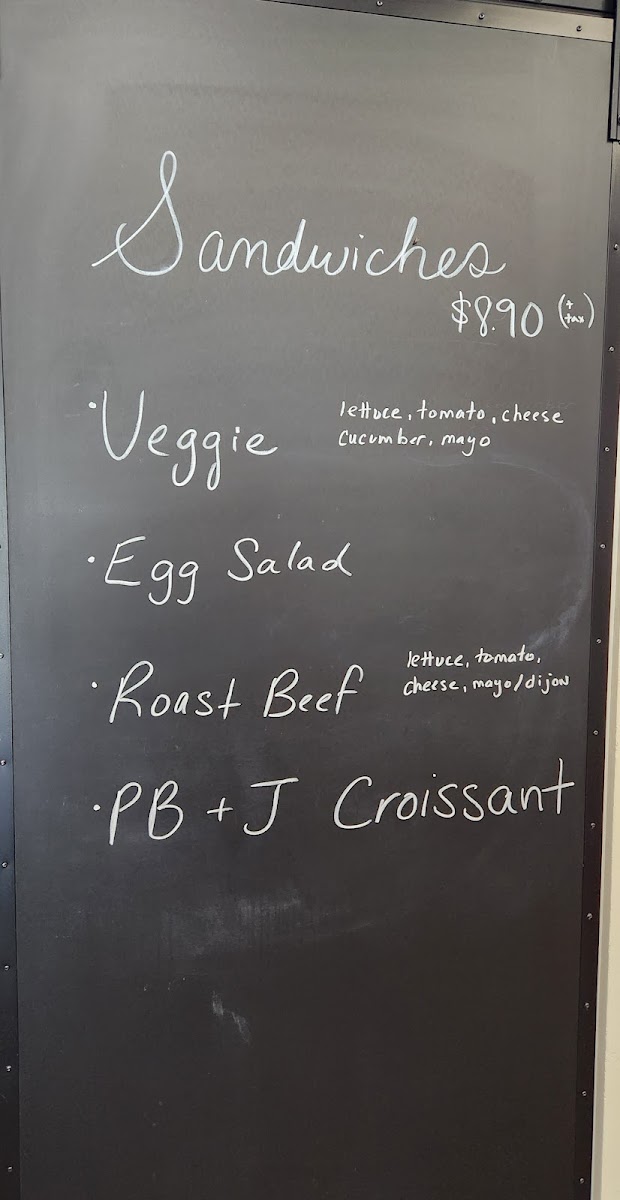 Sandwiches
$8.90 (+ tax)
• Veggie
lettuce, tomato, cheese
cucumber, mayo
• Egg Salad
• Roast Beef
lettuce, tomato,
cheese, mayo/dijon
• PB + J Croissant